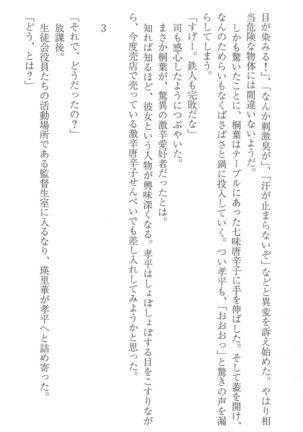 目が染みる！」、「なんか刺激臭が」、「汗が止まらないぞ」などと異変を訴え始めた。やはり相
当危険な物体には間違いないようだ。
しかも驚いたことに、桐葉はテーブルにあった七味唐辛子に手を伸ばした。そして蓋を開け、
なんのためらいもなくばさばさと鍋に投入していく。つい孝平も、「おおおっ」と驚きの声を漏
らしてしまう。
「すげー。鉄人も完敗だな」
司も感心したようにつぶやいた。
まさか桐葉が、驚異の激辛愛好者だったとは。
知れば知るほど、彼女という人物が興味深くなる。孝平はしょぼしょぼする目をこすりなが
ら、今度売店で売っている激辛唐辛子せんべいでも差し入れしてみようかと思った。
3
「それで、どうだったの？」
放課後。
生徒会役員たちの活動場所である監督生室に入るなり、瑛里華が孝平へと詰め寄った。
「どう、とは？」